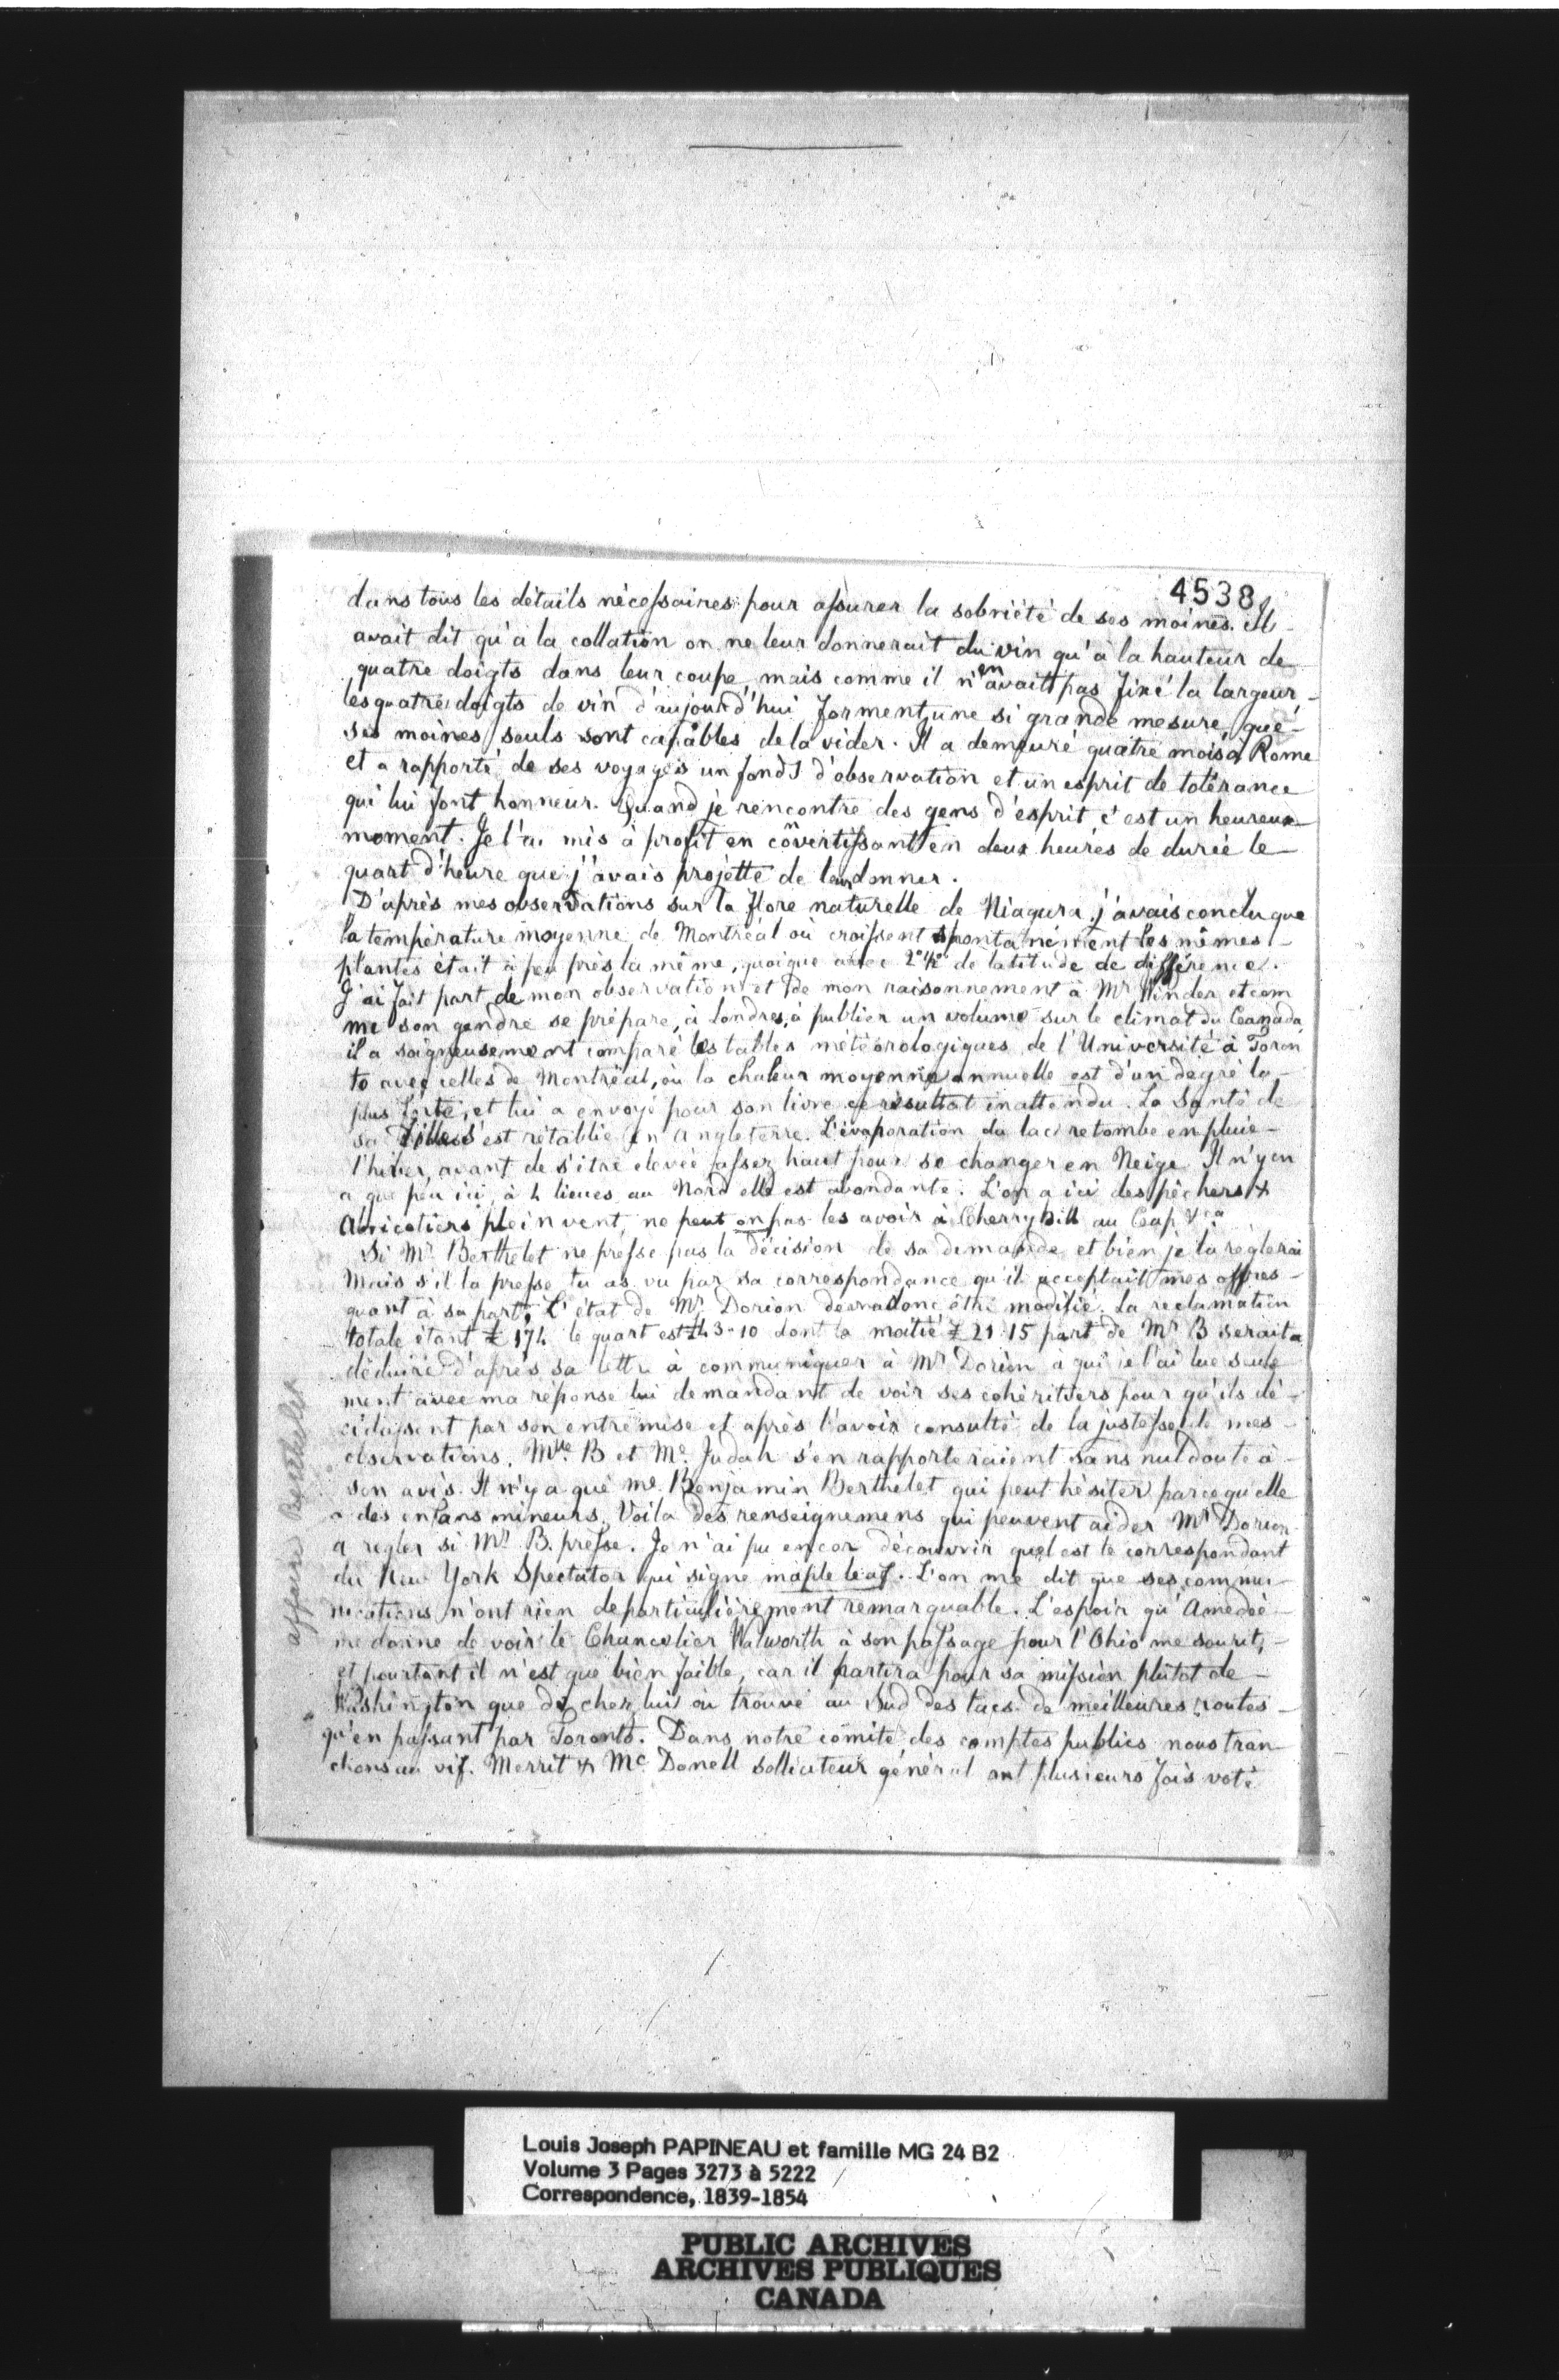 4538
dans tous les détails nécessaires pour assurer la sobriété de ses moines. Il
avait dit qu'à la collation on ne leur donnerait du vin qu'à la hauteur de
quatre doigts dans leur coupe, mais comme il n'en avait pas fixé la largeur,
les quatre doigts de vin d'aujourd'hui forment une si grande mesure, que
ses moines seuls sont capables de la vider. Il a demeuré quatre mois à Rome
et a rapporté de ses voyages un fonds d'observation et un esprit de tolérance
qui lui font honneur. Quand je rencontre des gens d'esprit c'est un heureux
moment. Je l'ai mis à profit en convertissant en deux heures de durée le
quart d'heure que j'avais projetté de leur donner.
D'après mes observations sur la flore naturelle de Niagara, j'avais conclu que
la température moyenne de Montréal où croissent spontanément les mêmes
plantes était à peu près la même, quoique avec 2° 1/2 de latitude de différence.
J'ai fait part de mon observation et de mon raisonnement à Mr Winder, et com
me son gendre se prépare, à Londres, à publier un volume sur le climat du Canada,
il a soigneusement comparé les tables météorologiques de l'Université à Toron
to avec celles de Montréal, où la chaleur moyenne annuelle est d'un degré la
plus forte, et lui a envoyé pour son livre ce résultat inattendu. La Santé de
sa fille s'est rétablie en Angleterre. L'évaporation du lac retombe en pluie
l'hiver, avant de s'être élevée assez haut pour se changer en Neige. Il n'y en
a que peu ici, à 4 lieues au Nord elle est abondante. L'on a ici des pêchers &
Abricotiers plein vent, ne peut on pas les avoir à Cherry hill au Cap
Si Mr Berthelet ne presse pas la décision de sa demande et bien je la réglerai
Mais s'il la presse tu as vu par sa correspondance qu'il acceptait mes offres
quant à sa part, L'état de Mr Dorion devra donc être modifié. La reclamation
totale étant £ 174 le quart est 43-10 dont la moitié £ 21-15 part de Mr B serait a
déduire d'après sa lettre à communiquer à Mr Dorion à qui je l'ai lue seule
ment avec ma réponse lui demandant de voir ses cohéritiers pour qu'ils dé
cidassent par son entremise et après l'avoir consulté de la justesse de mes
observations. Mlle B et Me Judah s'en rapporteraient sans nul doute à
son avis. Il n'y a que me Benjamin Berthelet qui peut hésiter parce qu'elle
a des enfans mineurs. Voilà des renseignemens qui peuvent aider Mr Dorion
a régler si Mr B. presse. Je n'ai pu encor découvrir quel est le correspondant
du New York Spectator qui signe maple leaf. L'on me dit que ses commu
nications n'ont rien de particulièrement remarquable. L'espoir qu'Amédée
me donne de voir le Chancelier Walworth à son passage pour l'Ohio me sourit,
et pourtant il n'est que bien faible, car il partira pour sa mission plutôt de
Washington que de chez lui où trouve au Sud des lacs de meilleures routes
qu'en passant par Toronto. Dans notre comité des comptes publics nous tran
chons au vif. Merrit & Mc Donell solliciteur général ont plusieurs fois voté
affaire Berthelet
Louis Joseph PAPINEAU et famille MG 24 B2
Volume 3 Pages 3273 à 5222
Correspondence, 1839-1854
PUBLIC ARCHIVES
ARCHIVES PUBLIQUES
CANADA